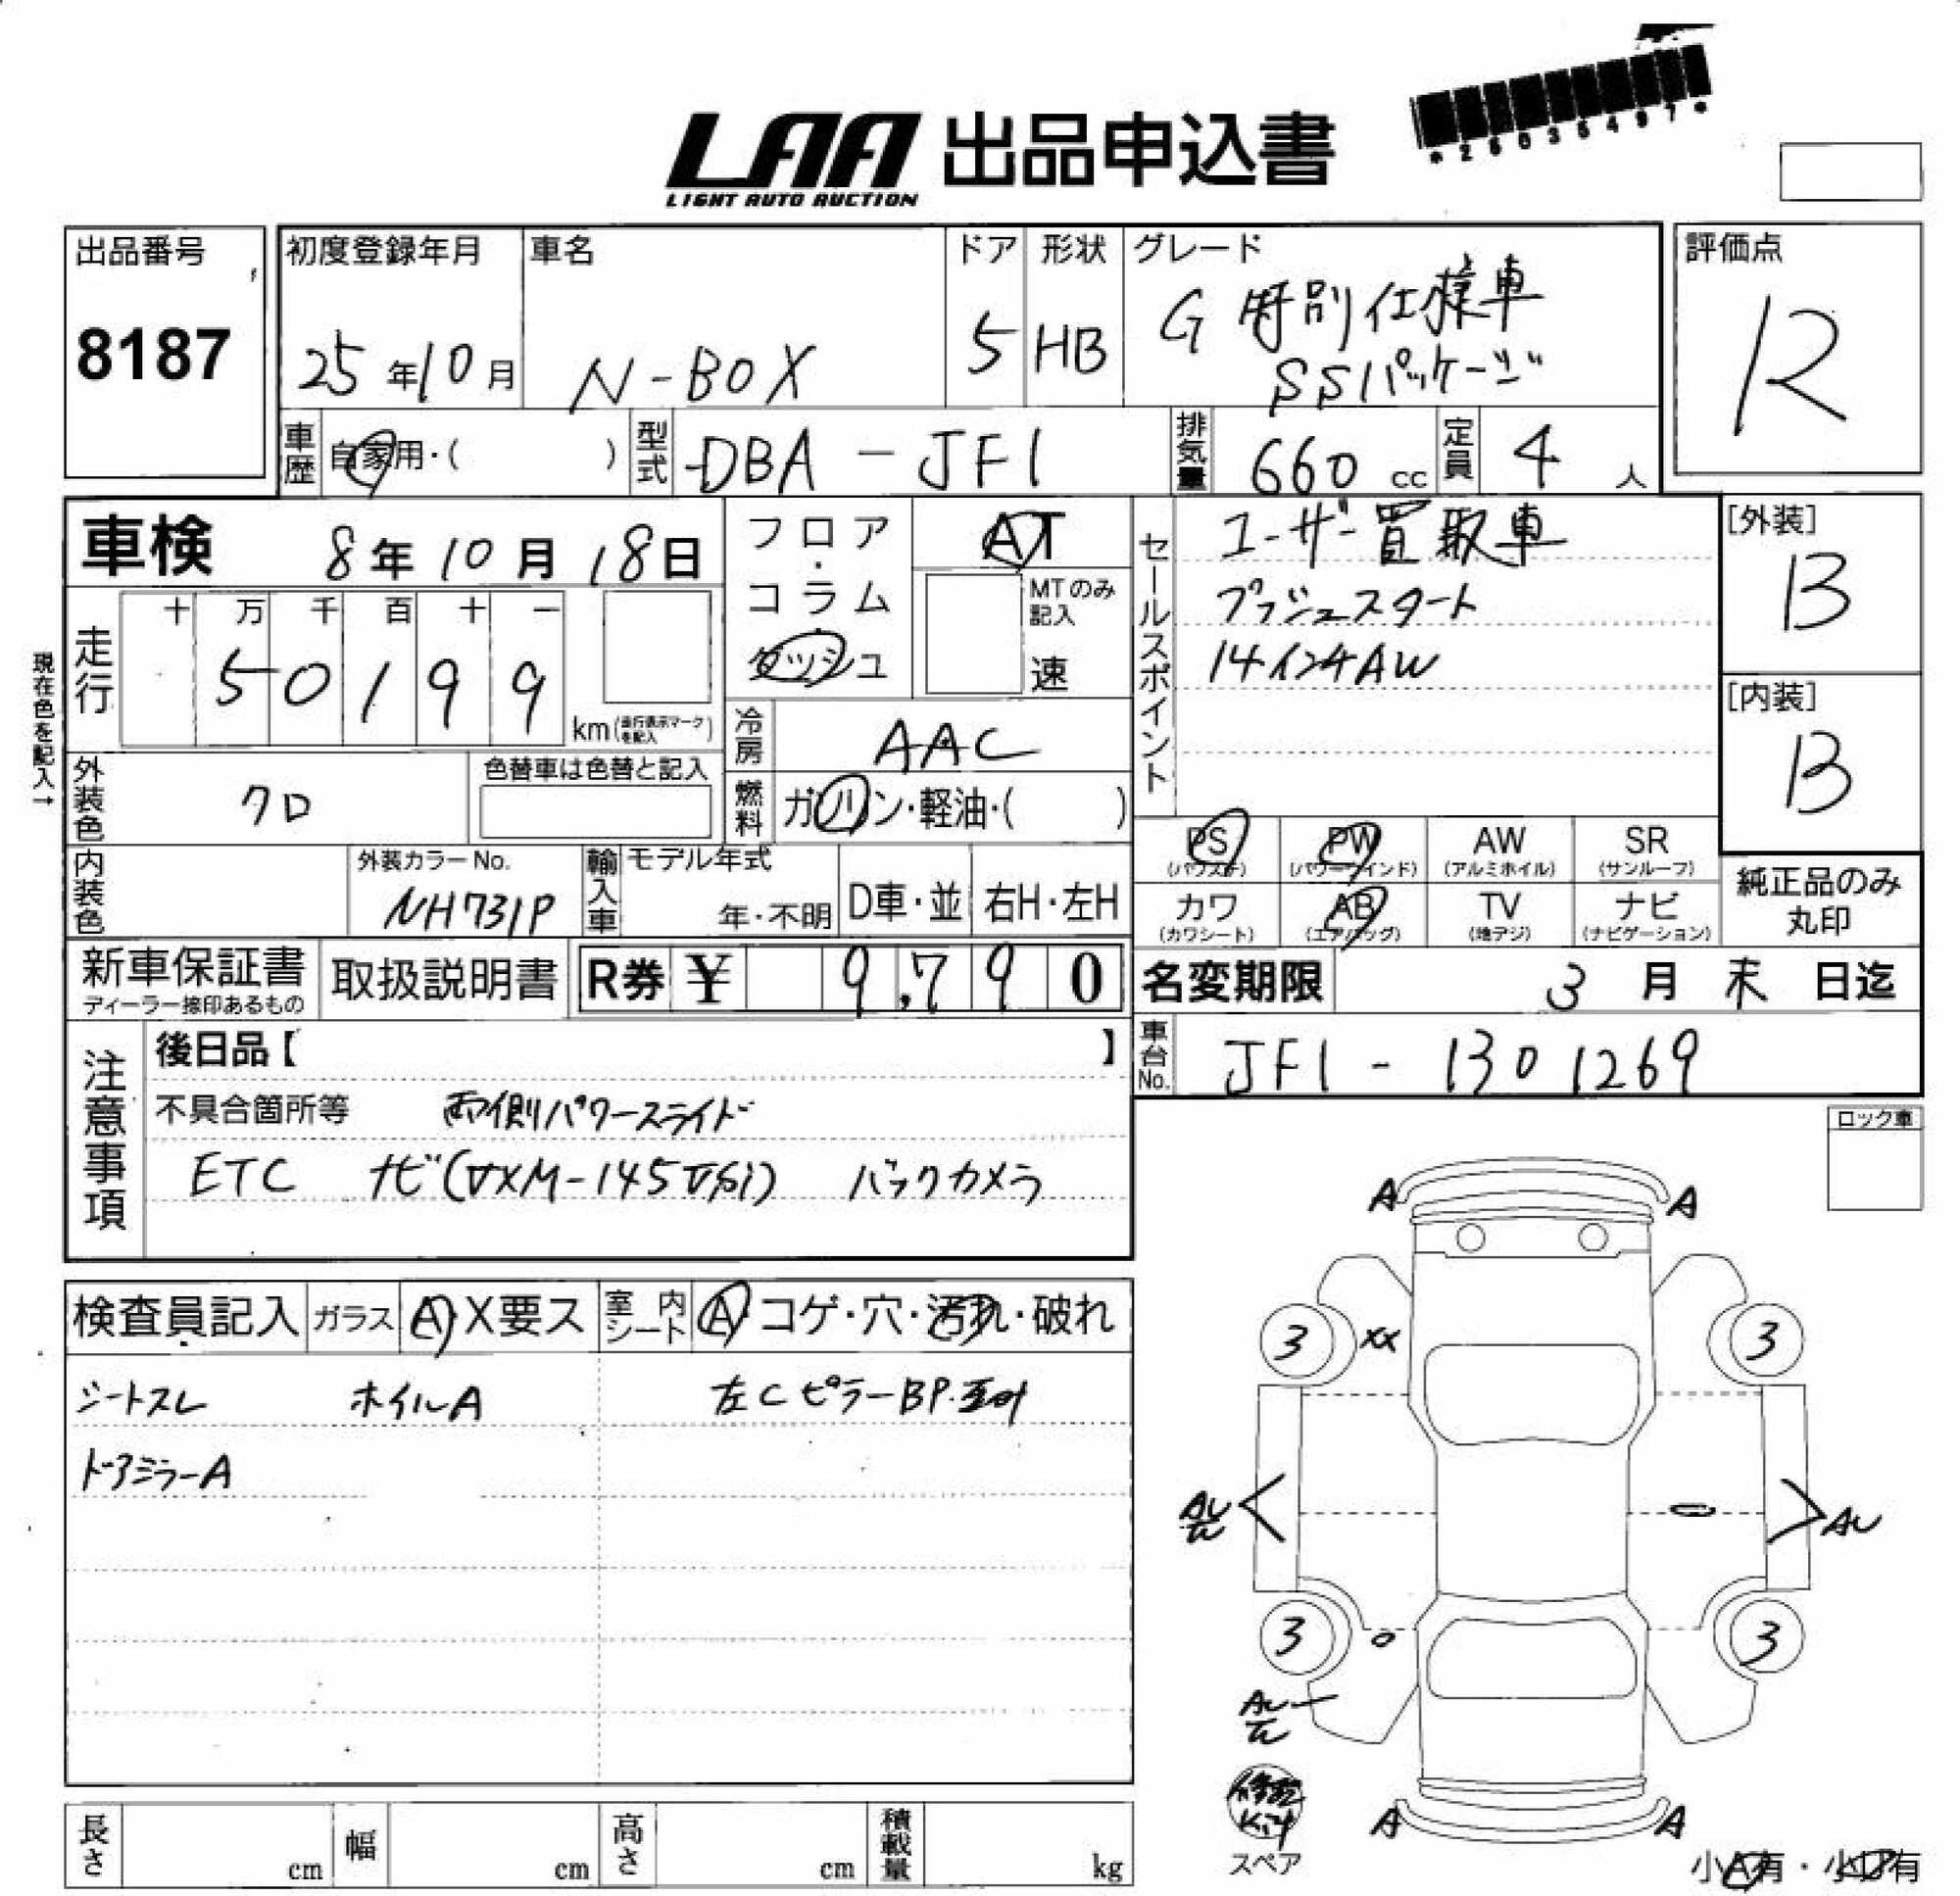 *26035497*
LAA 出品申込書
LIGHT AUTO AUCTION
出品番号
8187
初度登録年月
25年10月
車名
N-BOX
ドア
5
形状
HB
グレード
G 特別仕様車
SSパッケージ
評価点
R
車歴
自家用・( )
型式
DBA-JF1
排気量
660 cc
定員
4 人
車検
8年10月18日
フロア・コラム・ダッシュ
AT
MTのみ記入
速
セールスポイント
ユーザー買取車
プッシュスタート
14インチAW
[外装]
B
[内装]
B
現在色を記入→
走行
十万千百十一
50199
km(走行表示マークを記入)
冷房
AAC
外装色
クロ
色替車は色替と記入
燃料
ガソリン・軽油・( )
PS
(パワステ)
PW
(パワーウインド)
AW
(アルミホイル)
SR
(サンルーフ)
内装色
外装カラーNo.
NH731P
輸入車
モデル年式
年・不明
D車・並
右H・左H
カワ
(カワシート)
AB
(エアバッグ)
TV
(地デジ)
ナビ
(ナビゲーション)
純正品のみ
丸印
新車保証書
ディーラー捺印あるもの
取扱説明書
R券 ¥ 9,790
名変期限
3月末日迄
注意事項
後日品【 】
車台No.
JF1-1301269
不具合箇所等 両側パワースライド
ETC ナビ(VXM-145VSi) バックカメラ
ロック車
検査員記入
ガラス
A・X要ス
室内シート
A・コゲ・穴・汚れ・破れ
シートスレ ホイルA 左CピラーBP
ドアミラーA
A A
3 XX 3
AU AU
3 3
AU
スペア
A A
小A有・小U有
長さ cm
幅 cm
高さ cm
積載量 kg